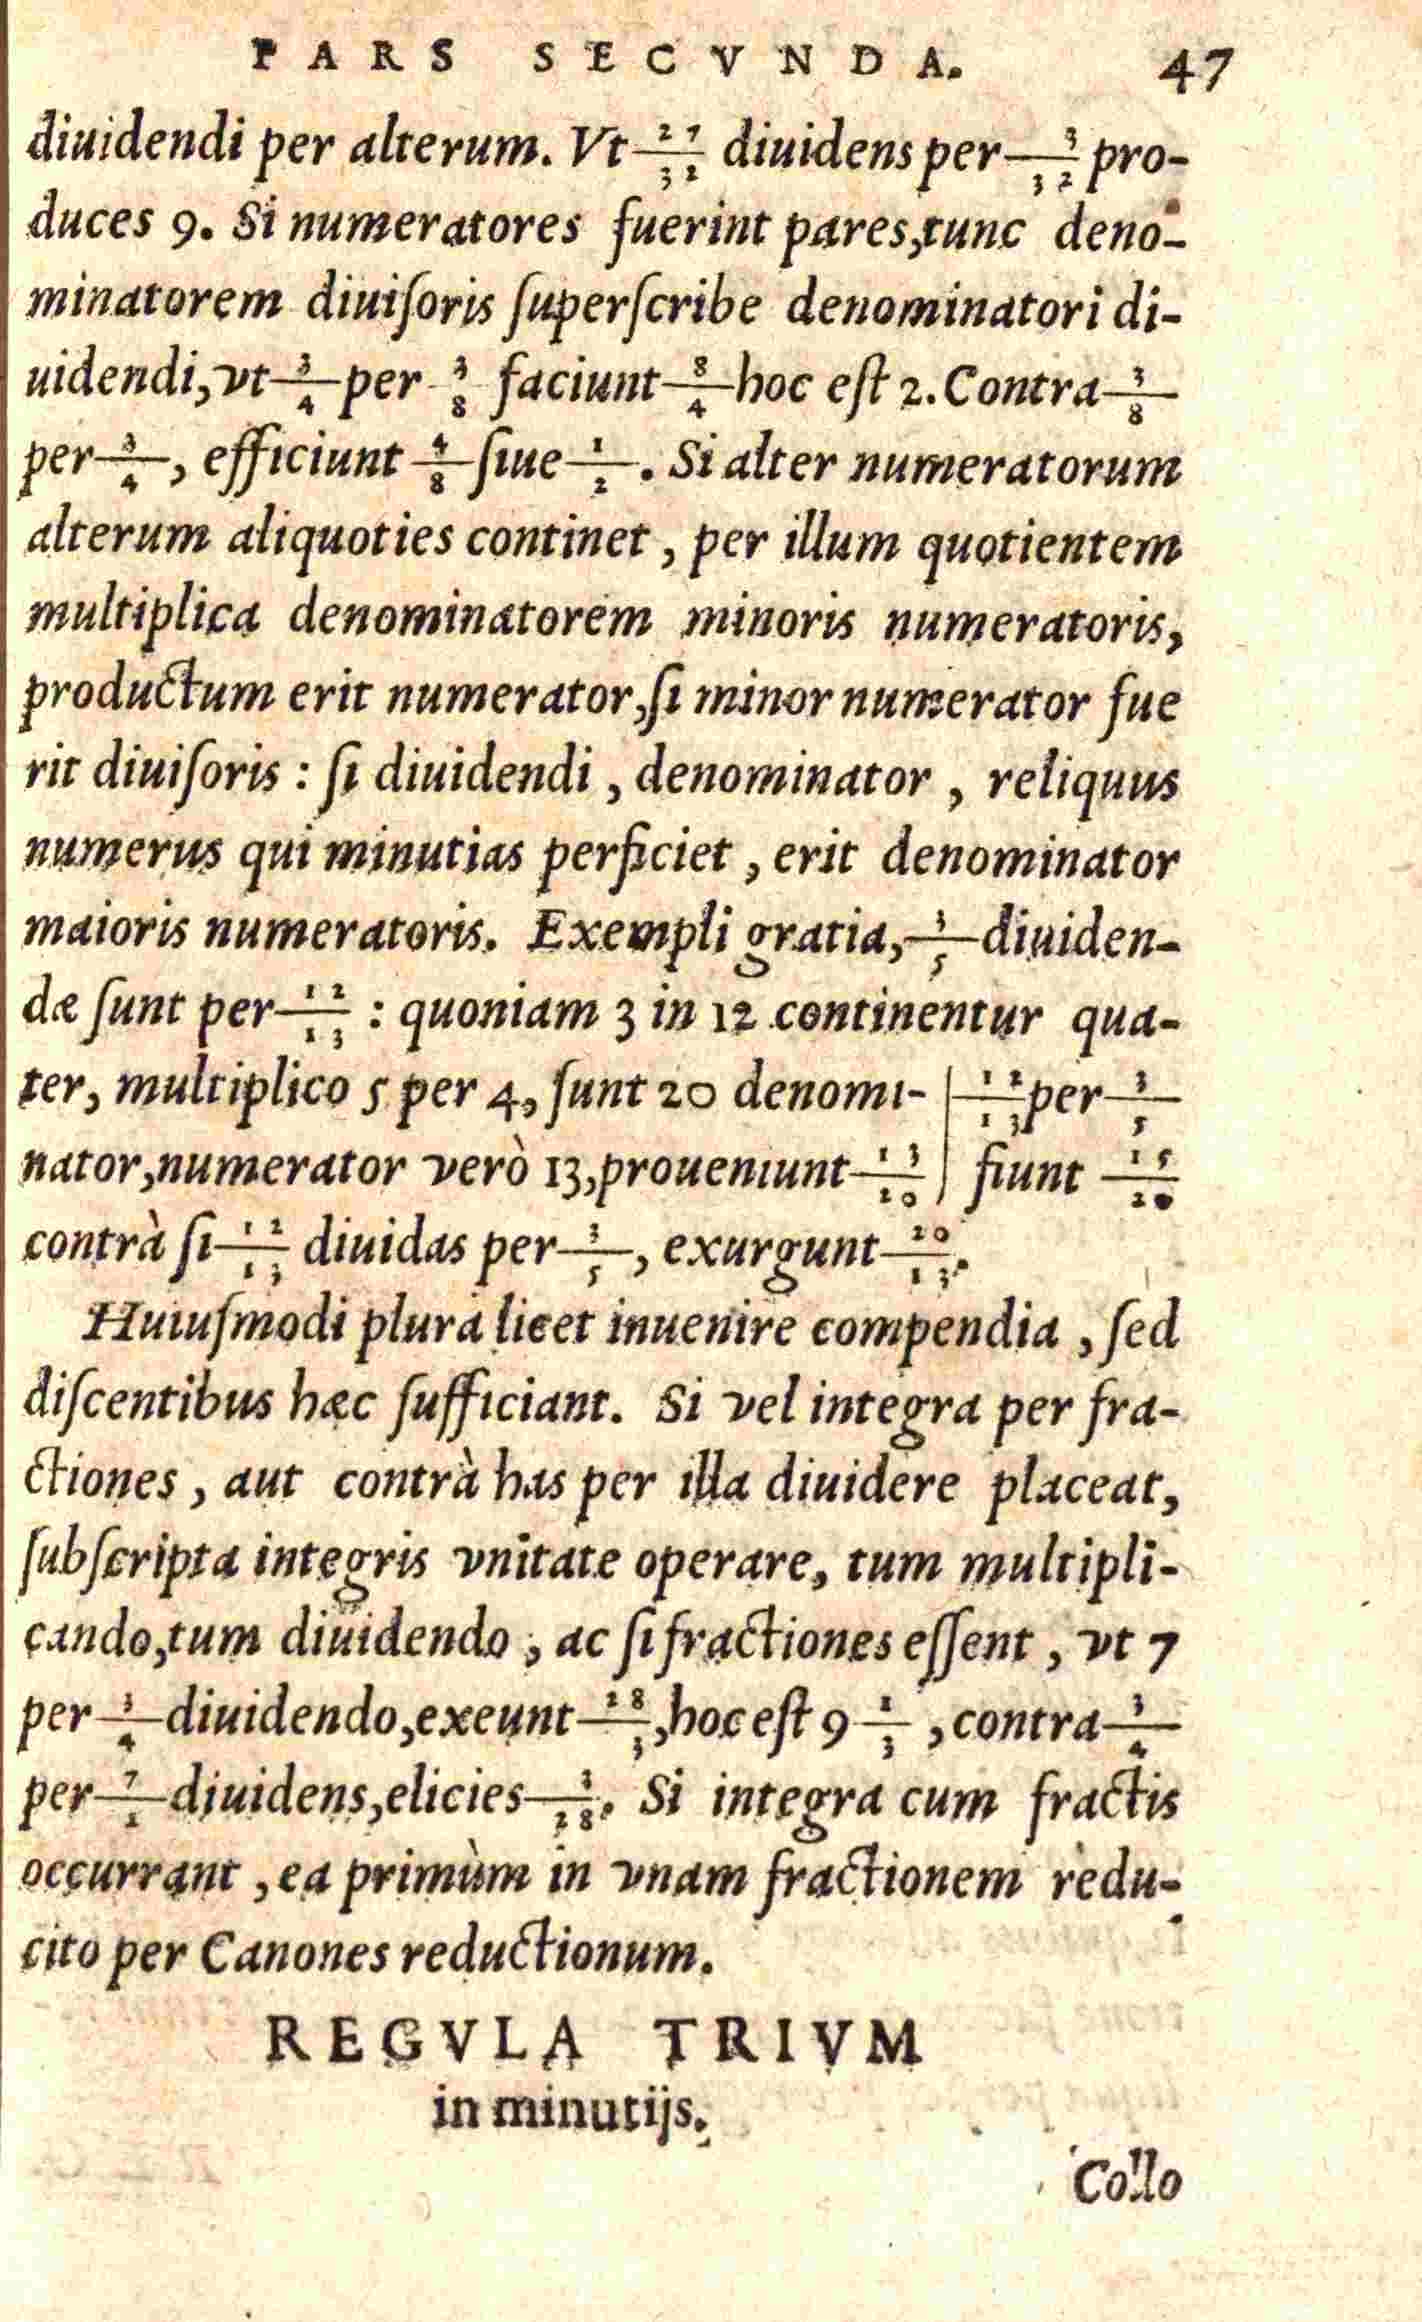 PARS SECVNDA. 47
diuidendi per alterum. Vt 27/32 diuidens per 3/32 pro-
duces 9. Si numeratores fuerint pares, tunc deno-
minatorem diuiſoris ſuperſcribe denominatori di-
uidendi, vt 3/4 per 3/8 faciunt 8/4 hoc eſt 2. Contra 3/8
per 3/4, efficiunt 4/8 ſiue 1/2. Si alter numeratorum
alterum aliquoties continet, per illum quotientem
multiplica denominatorem minoris numeratoris,
productum erit numerator, ſi minor numerator fue
rit diuiſoris: ſi diuidendi, denominator, reliquus
numerus qui minutias perficiet, erit denominator
maioris numeratoris. Exempli gratia, 3/5 diuiden-
dæ ſunt per 12/13: quoniam 3 in 12 continentur qua-
ter, multiplico 5 per 4, ſunt 20 denomi- | 12/13 per 3/5
nator, numerator verò 13, proueniunt 13/20 | fiunt 15/20
contrà ſi 12/13 diuidas per 3/5, exurgunt 20/13.
Huiuſmodi plura licet inuenire compendia, ſed
diſcentibus hæc ſufficiant. Si vel integra per fra-
ctiones, aut contrà has per illa diuidere placeat,
ſubſcripta integris vnitate operare, tum multipli-
cando, tum diuidendo, ac ſi fractiones eſſent, vt 7
per 3/4 diuidendo, exeunt 28/3, hoc eſt 9 1/3, contra 3/4
per 7/1 diuidens, elicies 3/28. Si integra cum fractis
occurrant, ea primùm in vnam fractionem redu-
cito per Canones reductionum.
REGVLA TRIVM
in minutijs.
Collo